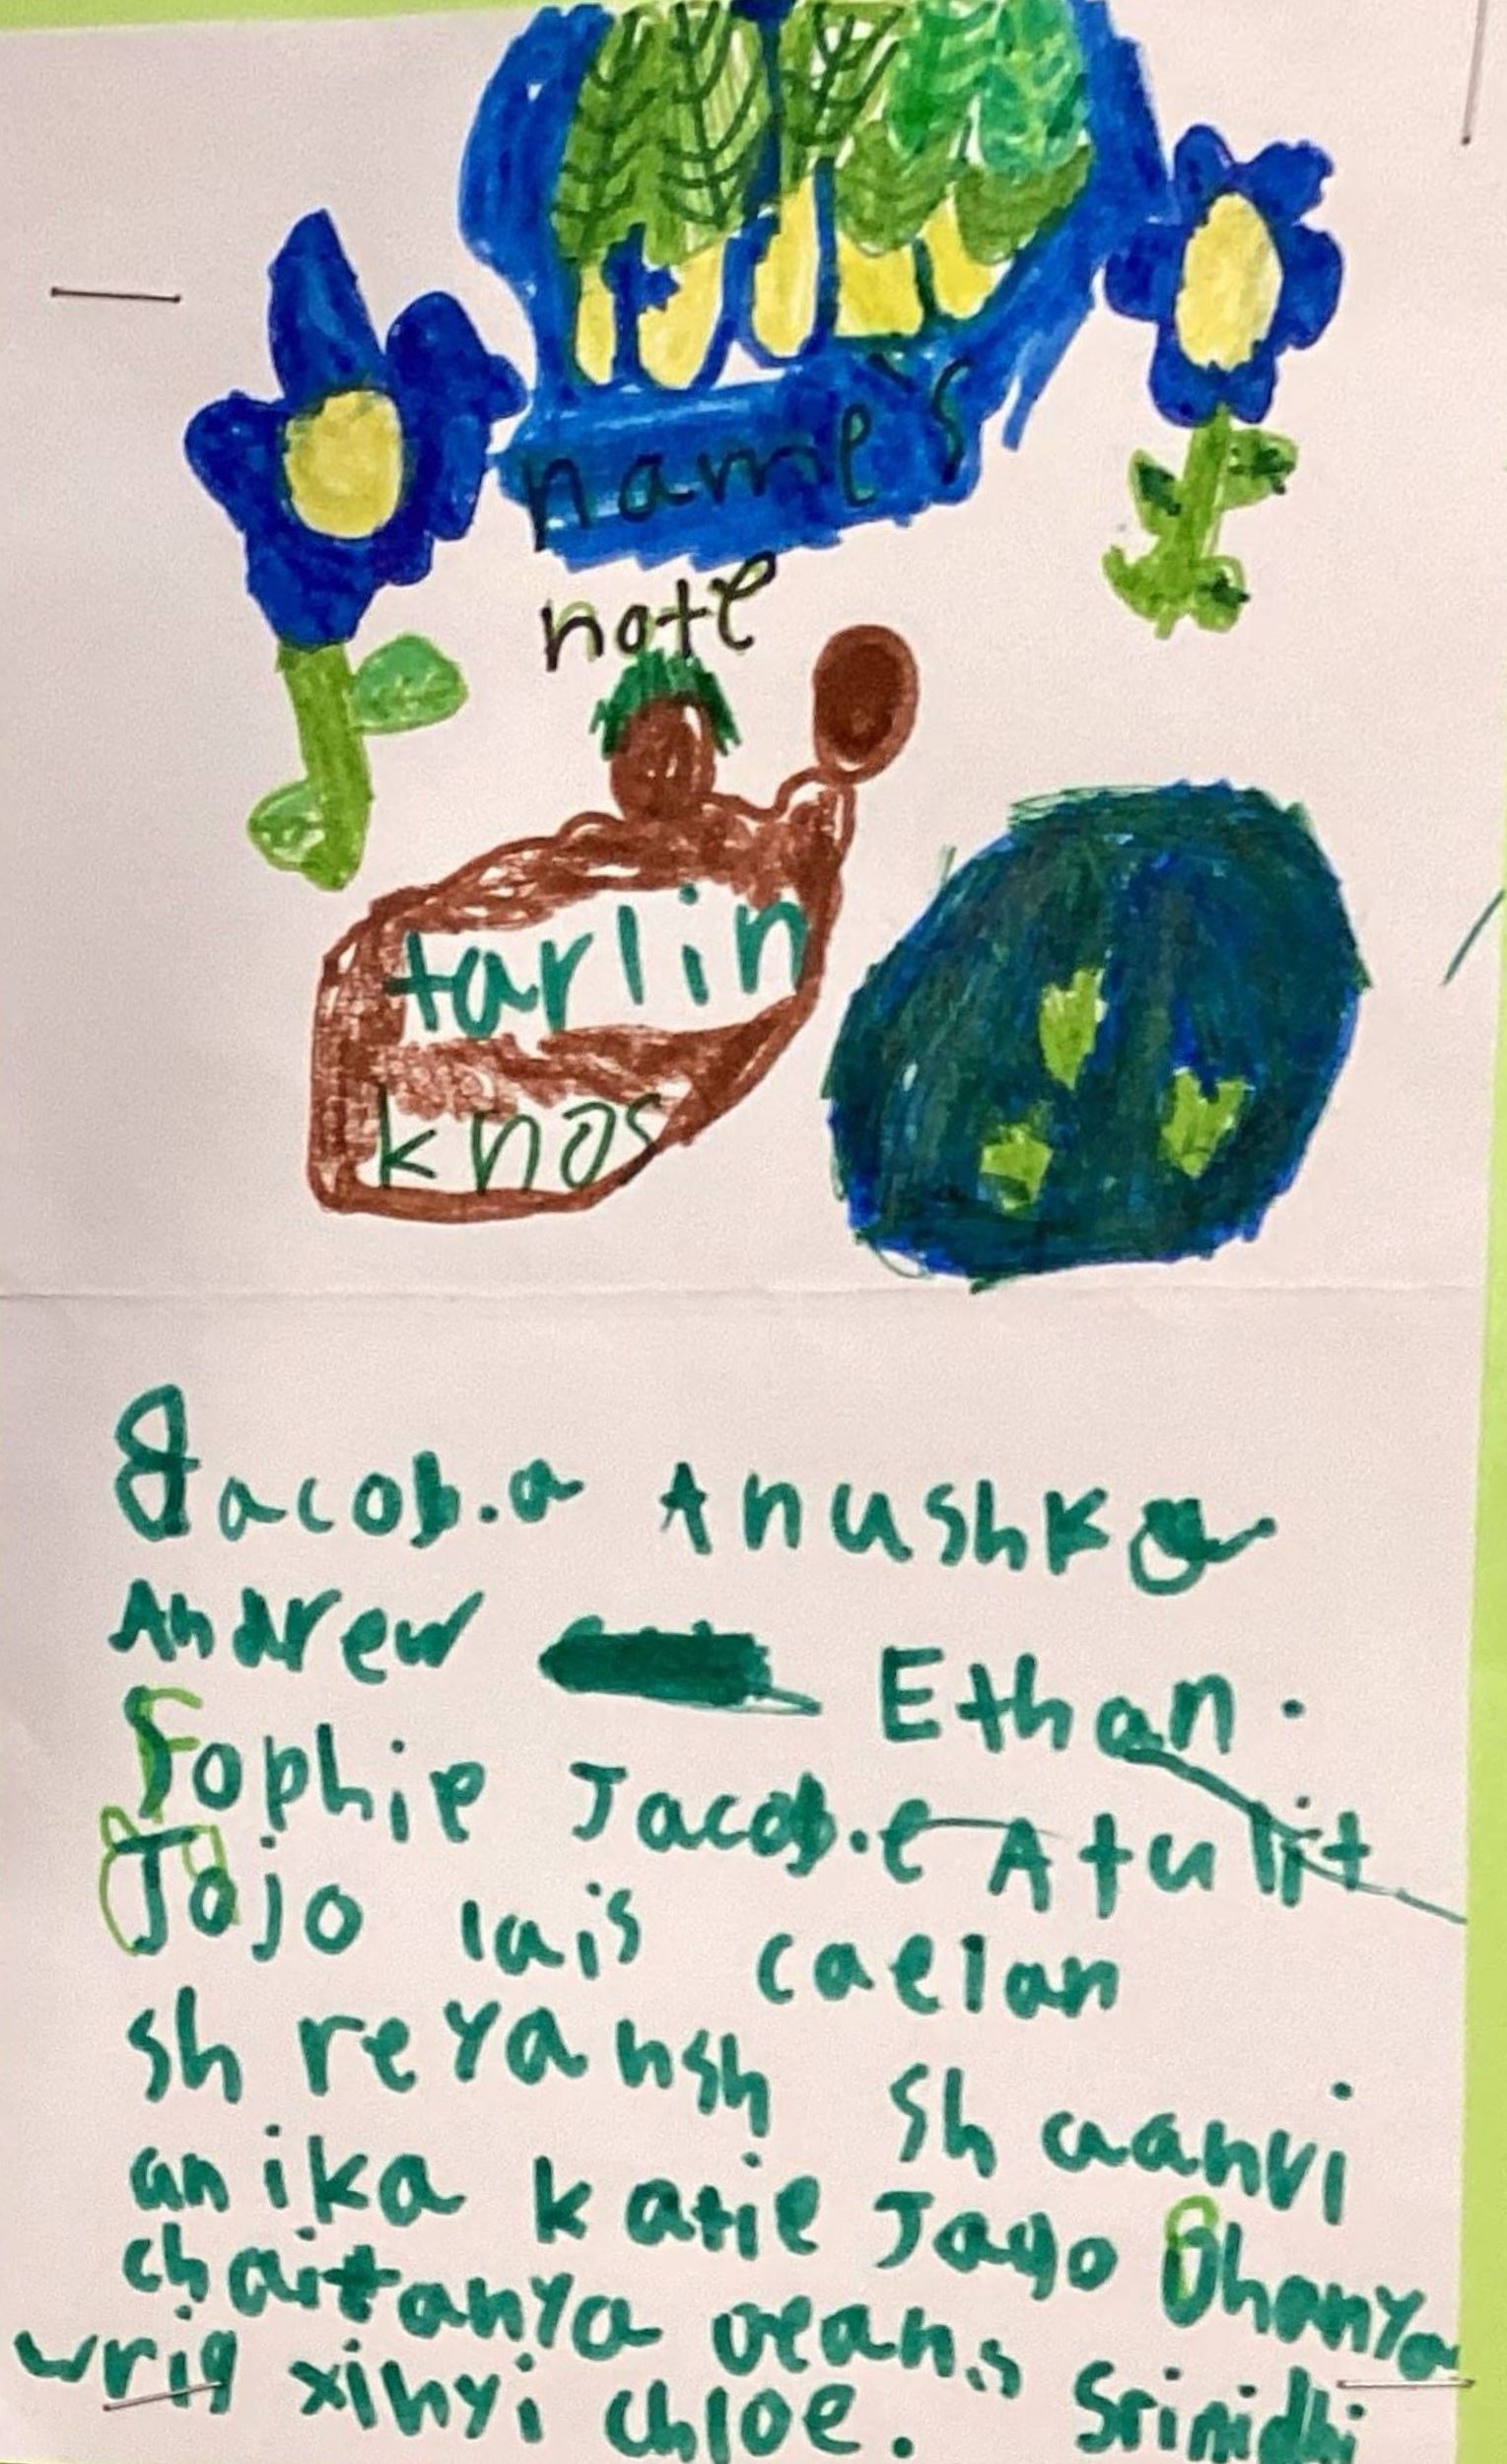 name's
note
tarlin
knos
Jacob.a Anushka
Andrew Ethan.
Sophie Jacob.e Atulit
Jojo lais caelan
shreyansh shaanvi
anika katie Jago Dhanya
chaitanya veans Srinidhi
wrig xinyi chloe.